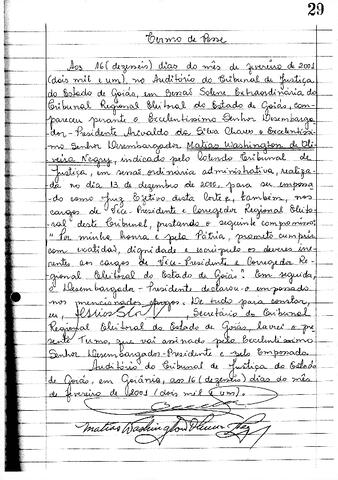 29
Termo de Posse
Aos 16 (dezeseis) dias do mês de fevereiro de 2001
(dois mil e um), no Auditório do Tribunal de Justiça
do Estado de Goiás, em Sessão Solene Extraordinária do
Tribunal Regional Eleitoral do Estado de Goiás, com-
pareceu perante o Excelentíssimo Senhor Desembarga-
dor-Presidente Arivaldo da Silva Chaves o Excelentíssi-
mo Senhor Desembargador Matias Washington de Oli-
veira Negry, indicado pelo Colendo Tribunal de
Justiça, em sessão ordinária administrativa, realiza-
da no dia 13 de dezembro de 2000, para ser empossa-
do como Juiz Efetivo desta Corte e, também, nos
cargos de Vice-Presidente e Corregedor Regional Eleito-
ral deste Tribunal, prestando o seguinte compromisso:
"Por minha honra e pela Pátria, prometo cumprir
com exatidão, dignidade e escrúpulo os deveres ine-
rentes aos cargos de Vice-Presidente e Corregedor Re-
gional Eleitoral do Estado de Goiás". Em seguida,
o Desembargador-Presidente declarou-o empossado
nos mencionados cargos. De tudo para constar,
eu, Secretário do Tribunal
Regional Eleitoral do Estado de Goiás, lavrei o pre-
sente Termo, que vai assinado pelo Excelentíssimo
Senhor Desembargador-Presidente e pelo Empossado.
Auditório do Tribunal de Justiça do Estado
de Goiás, em Goiânia, aos 16 (dezeseis) dias do mês
de fevereiro de 2001 (dois mil e um).
Matias Washington Oliveira Negry